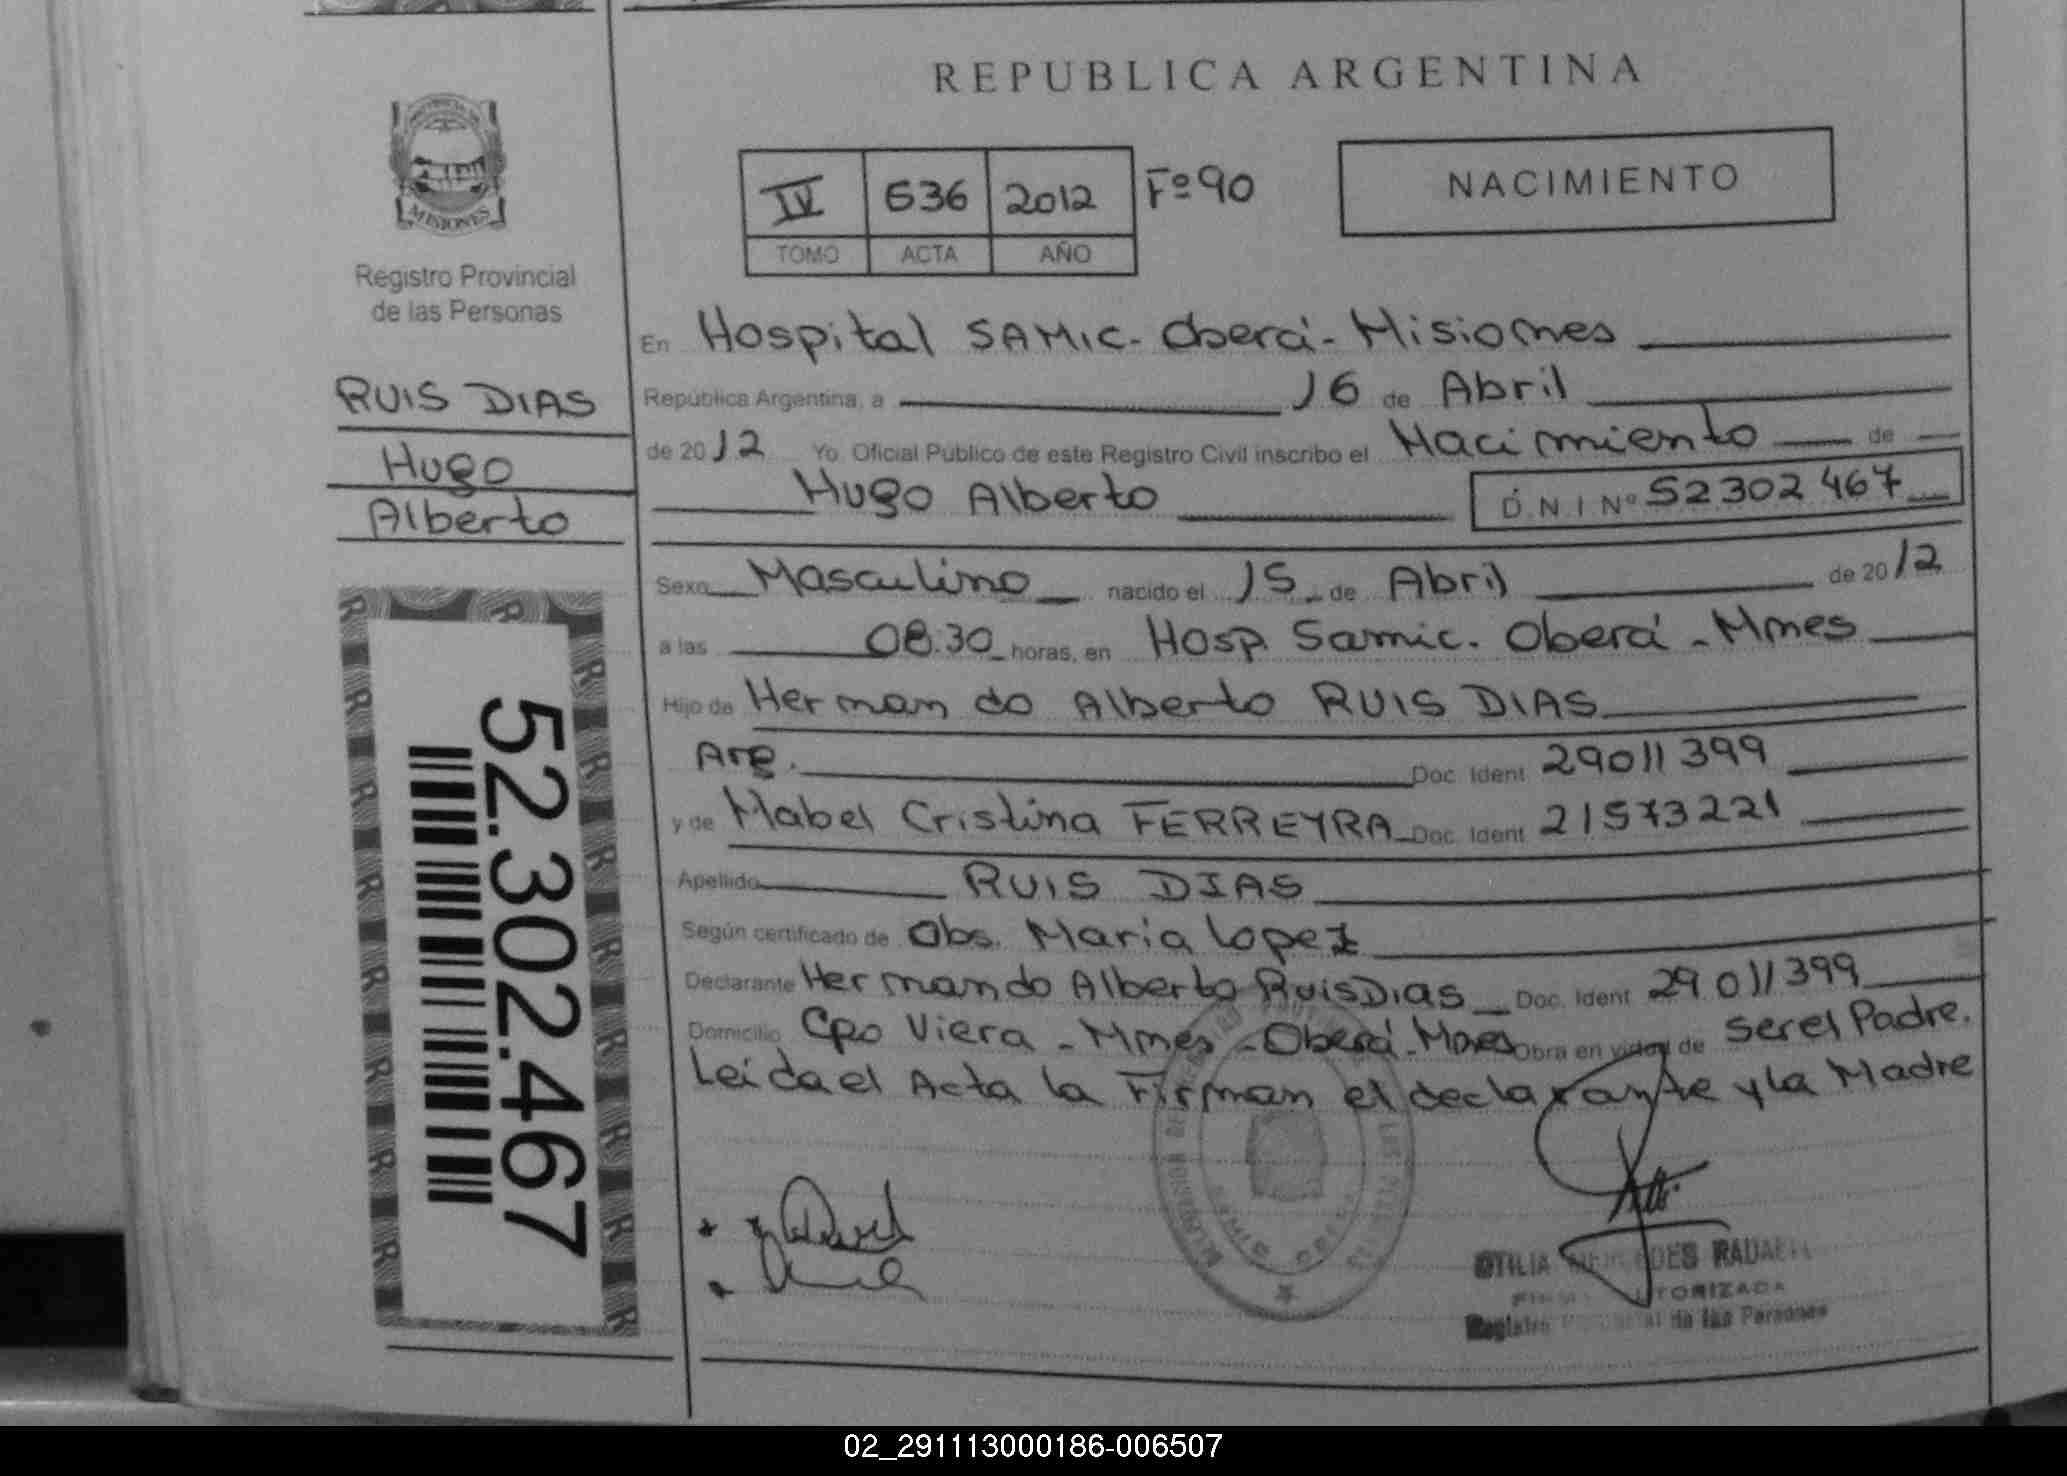 REPUBLICA ARGENTINA
MISIONES
Registro Provincial
de las Personas
RUIS DIAS
Hugo
Alberto
52.302.467
IV 636 2012 Fº90
TOMO ACTA AÑO
NACIMIENTO
En Hospital SAMIC - Oberá - Misiones
República Argentina, a 16 de Abril
de 2012 Yo Oficial Público de este Registro Civil inscribo el Nacimiento de
Hugo Alberto D.N.I Nº 52302467
Sexo Masculino nacido el 15 de Abril de 2012
a las 08:30 horas, en Hosp. Samic. Oberá - Mnes
Hijo de Hernando Alberto RUIS DIAS
Arg. Doc. Ident 29011399
y de Mabel Cristina FERREYRA Doc. Ident 21573221
Apellido RUIS DIAS
Según certificado de Obs. Maria Lopez
Declarante Hernando Alberto Ruis Dias Doc. Ident 29.011399
Domicilio Cpo Viera - Mnes - Oberá - Mnes Obra en virtud de Ser el Padre.
Leida el Acta la Firman el declarante y la Madre
OTILIA MERCEDES RADAELLI
FIRMA AUTORIZADA
Registro Provincial de las Personas
02_291113000186-006507